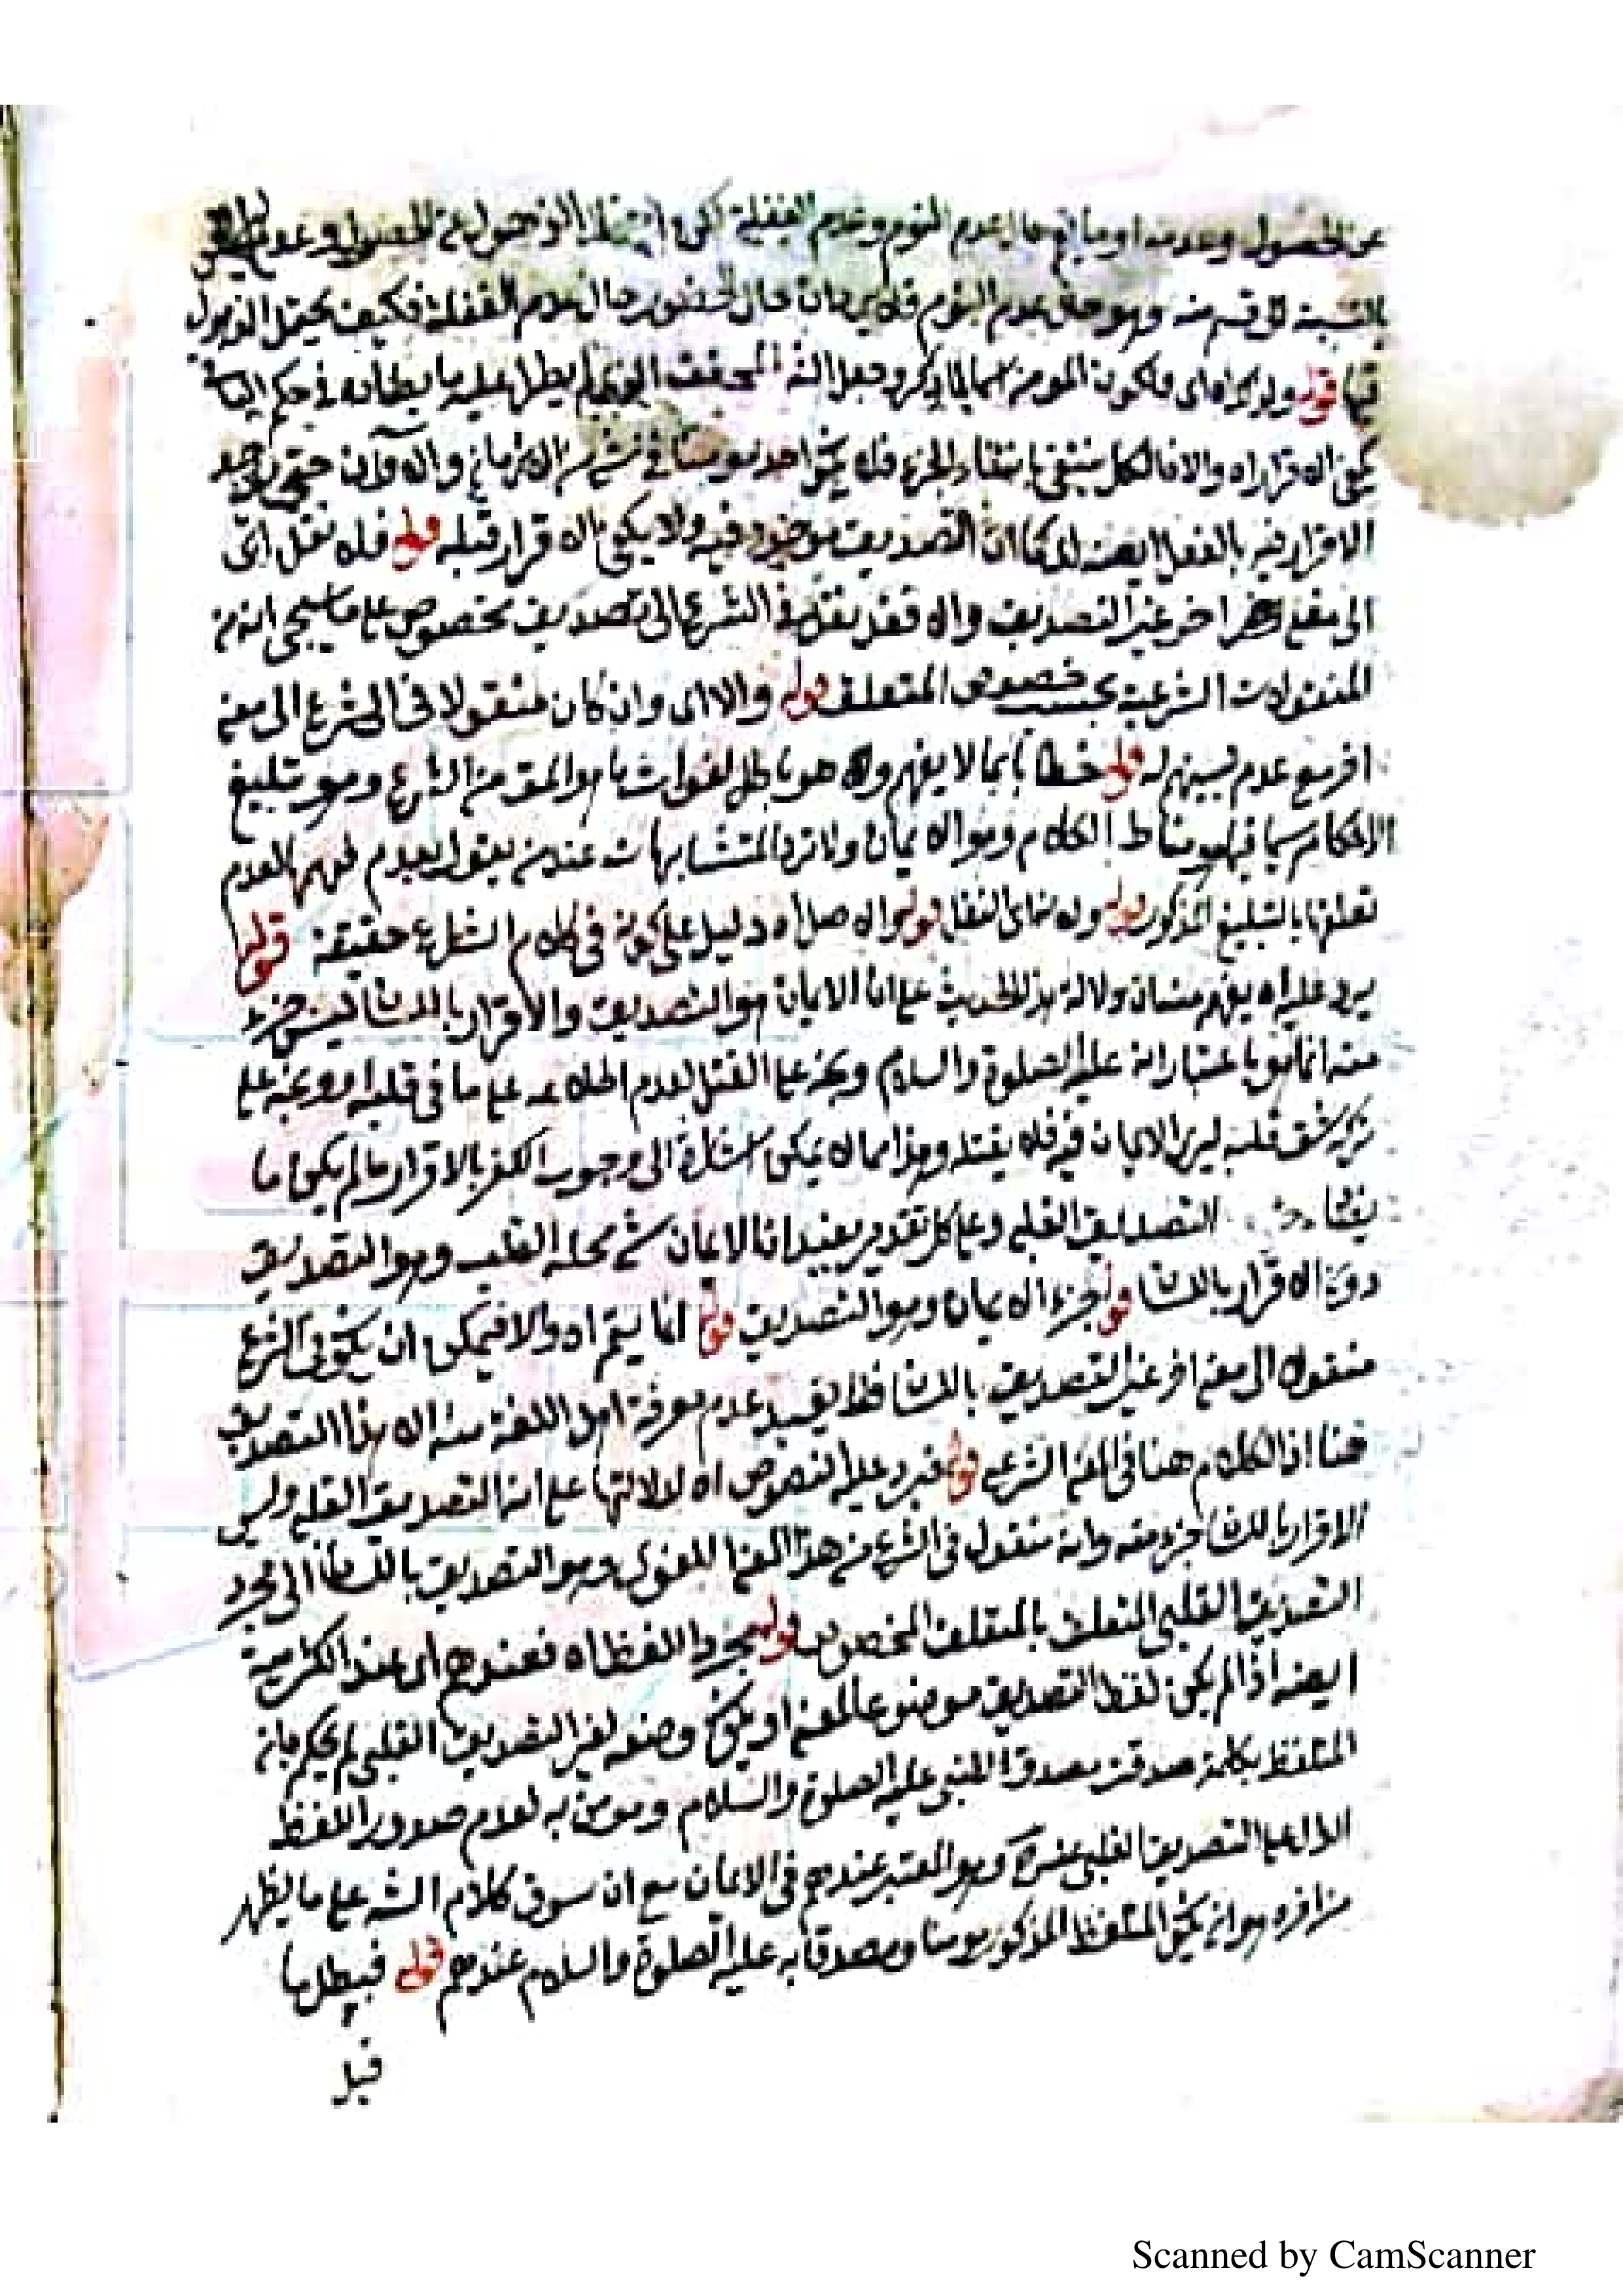 عن الحصول وعدمه او ما يعم حال عدم النوم وعدم الغفلة لكن
بالنسبة لقسم منه وهو حال عدم النوم فلا يرد ان حال الحضور حال عدم الغفلة فكيف يحتمل الذهول
فيها قوله ولذا اه اى ولكون المؤمن اسما لما ذكر وجعل الشرع المحقق الذى لم يطرأ عليه ما يضاده فى حكم الباقى
يكفى الاقرار اه والا فالكل ينتفى بانتفاء الجزء فلا يكون احد مؤمنا فى شئ من الازمان والاوان حتى يوجد
الاقرار فيه بالفعل ايضا كما ان التصديق موجود فيه ولا يكفى الاقرار قبله قوله فلا نقل اى
الى معنى آخر غير التصديق والا فقد نقل فى الشرع الى تصديق مخصوص على ما سيجئ انه من
المنقولات الشرعية بحسب خصوص المتعلق قوله والا اى وان كان منقولا فى الشرع الى معنى
آخر مع عدم تبيينه له قوله خطابا بما لا يفهم وهو باطل لفوات ما هو المقصود من الشارع وهو تبليغ
الاحكام سيما فيما هو مناط الكلام وهو الايمان ولا ترد المتشابهات عند من يقول بعدم فهمها لعدم
تعلقها بالتبليغ المذكور قوله ولانه اى النقل قوله والاصل اه دليل على كونه فى كلام الشارع حقيقة قوله
يرد عليه اه يفهم منه ان دلالة هذا الحديث على ان الايمان هو التصديق والاقرار باللسان ليس جزء
منه انما هو باعتبار انه عليه الصلوة والسلام وبخه على القتل لعدم اطلاعه على ما فى قلبه او وبخه على
ترك شق قلبه ليرى الايمان فيه فلا يقتله وهذا مما لا يمكن اشارة الى وجوب الكف بالاقرار ما لم يكن ما
التصديق القلبى وعلى كل تقدير يفيد ان الايمان شئ محله القلب وهو التصديق
دون الاقرار باللسان قوله جزء الايمان وهو التصديق قوله انما يتم اه والا فيمكن ان يكون فى الشرع
منقولا الى معنى آخر غير التصديق باللسان فلا يفيد عدم معرفة اهل اللغة منه الا هذا التصديق
هنا اذ الكلام هنا فى المعنى الشرعى قوله فيرد عليه النصوص اه لدلالتها على انه التصديق القلبى وليس
الاقرار باللسان جزء منه وانه منقول فى الشرع من هذا المعنى اللغوى وهو التصديق باللسان الى مجرد
التصديق القلبى المتعلق بالمتعلق المخصوص قوله مجرد اللفظ اه فعندهم اى عند الكرامية
ايضا اذا لم يكن لفظ التصديق موضوعا لمعنى او يكون وضعه لغير التصديق القلبى لم يحكم بان
المتلفظ بكلمة صدقت مصدق للنبى عليه الصلوة والسلام ومؤمن به لعدم صدور اللفظ
الدال على التصديق القلبى عنه وهو المعتبر عندهم فى الايمان مع ان سوق كلام الشرح على ما يظهر
من آخره هو ان يكون المتلفظ المذكور مؤمنا ومصدقا به عليه الصلوة والسلام عندهم قوله فبطل ما
قيل
Scanned by CamScanner